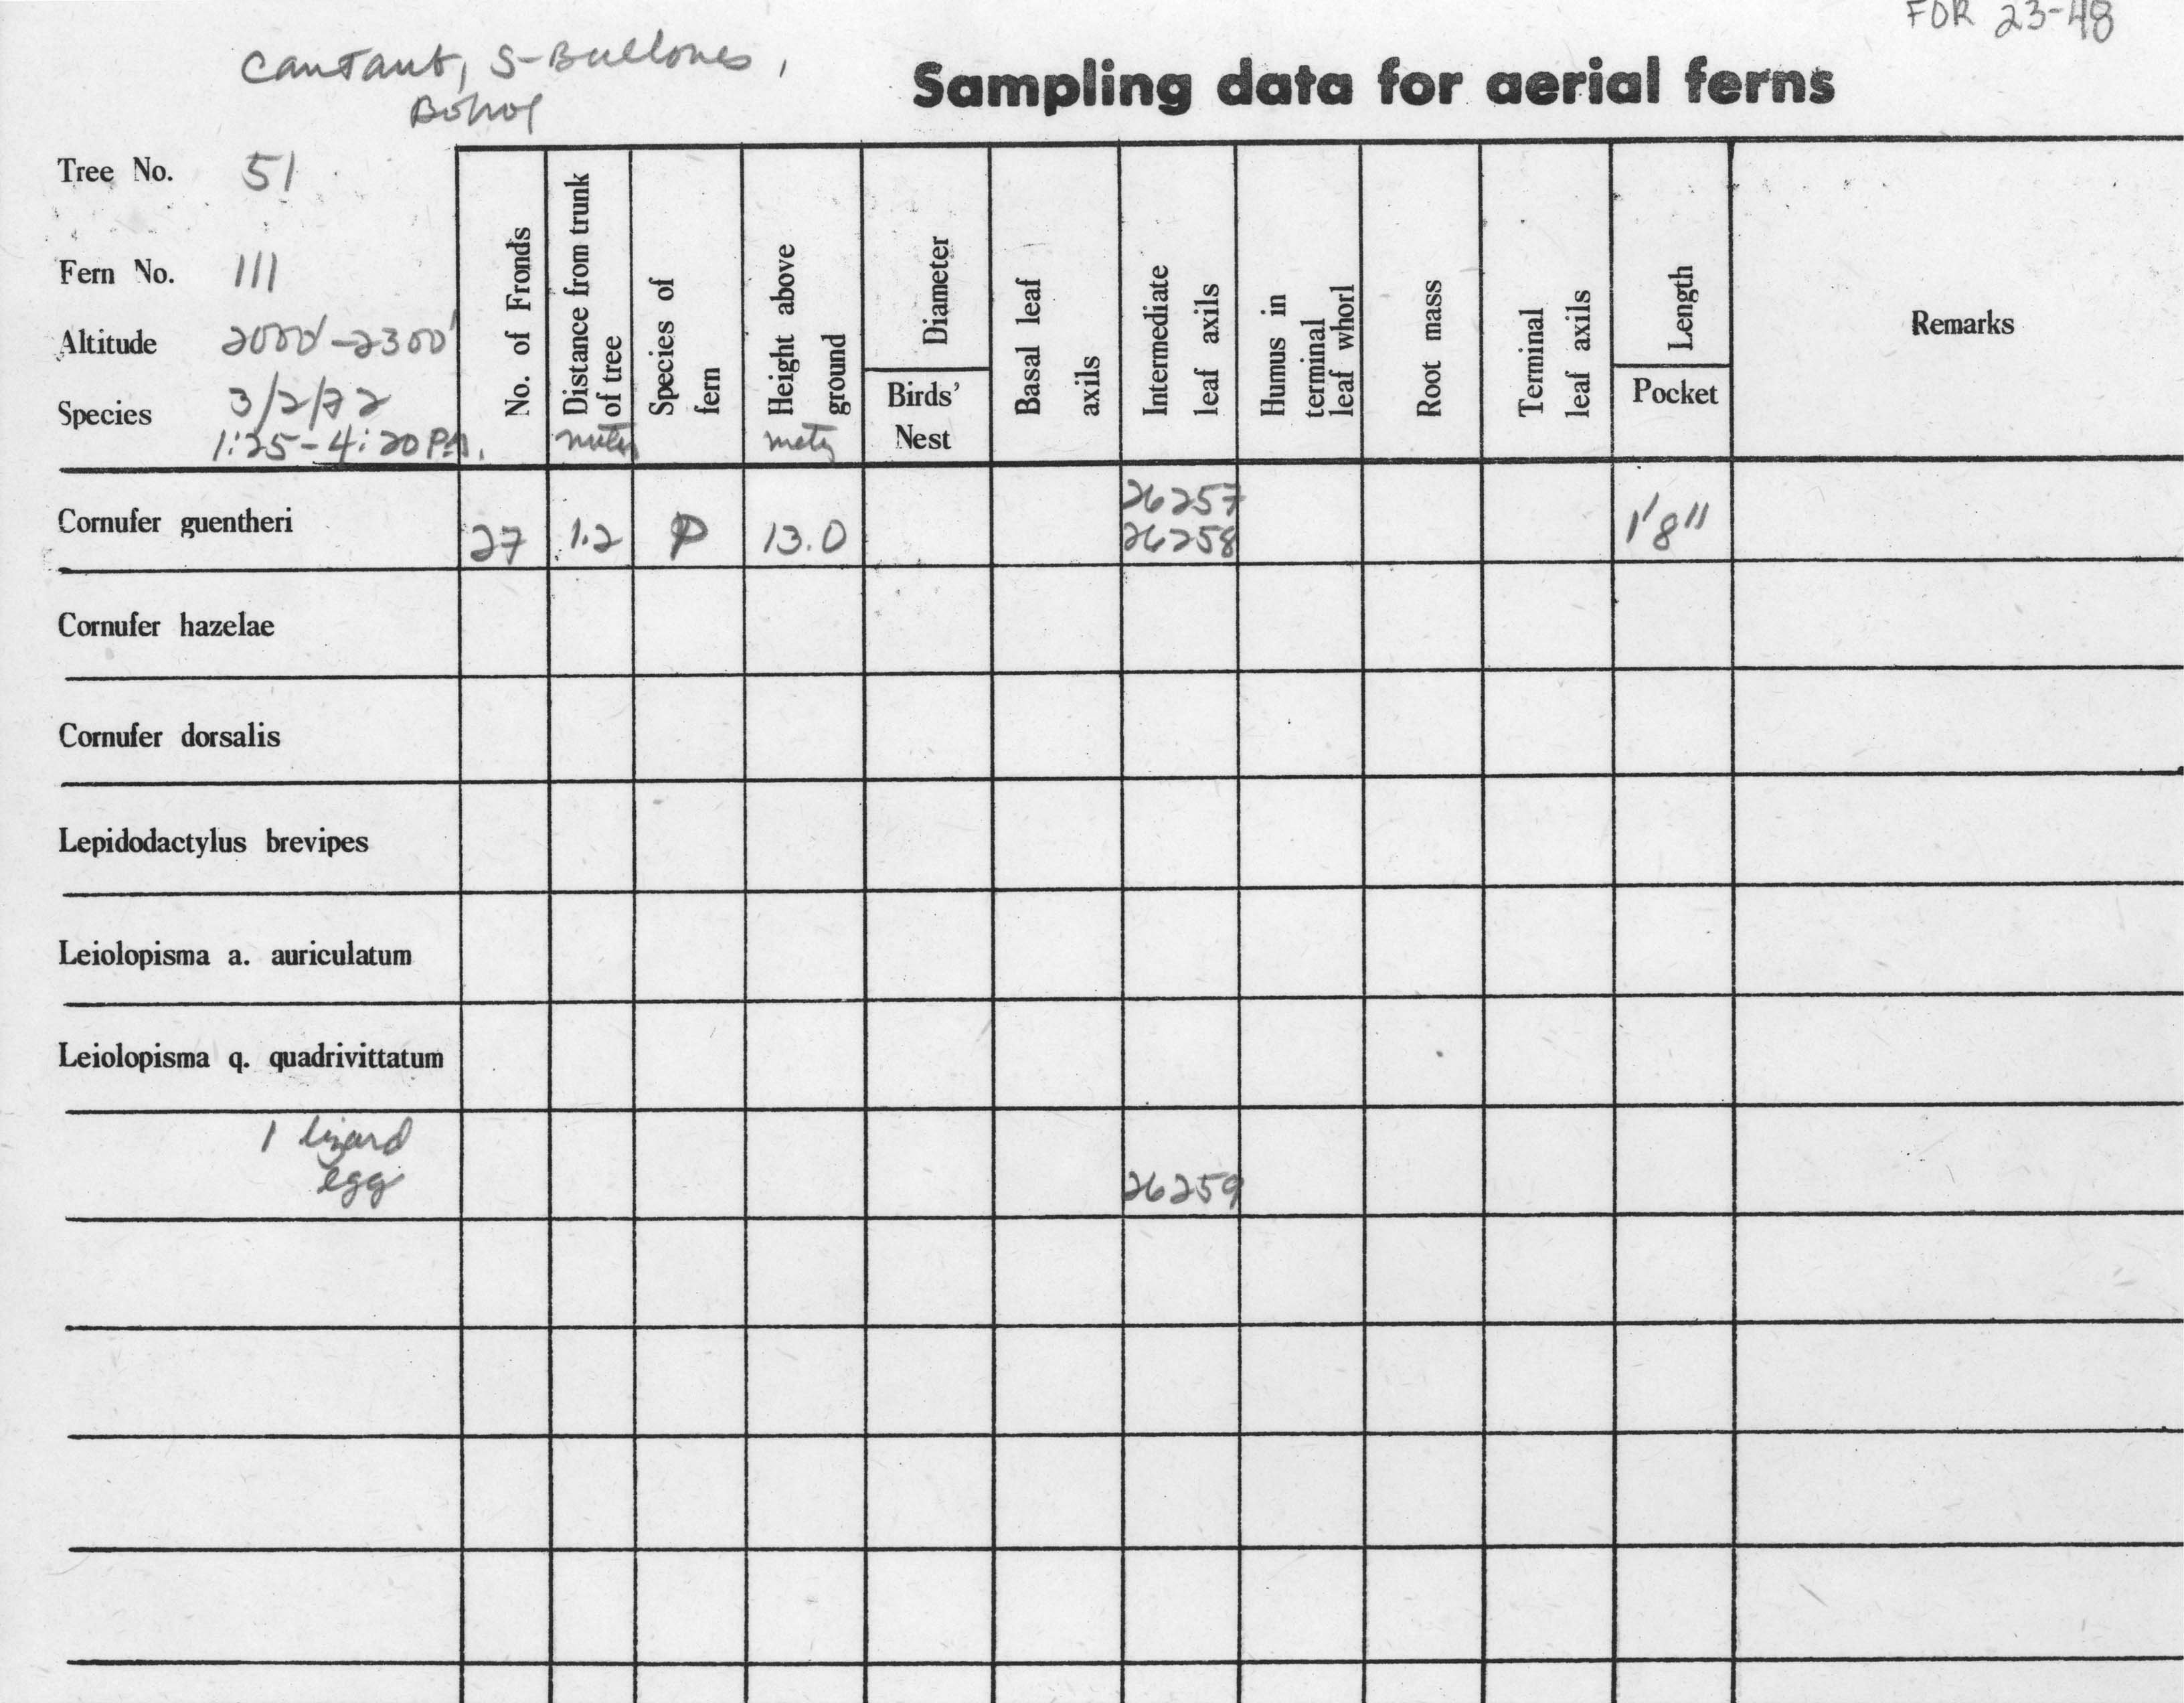 FDR 23-48
Cantaub, S-Bullones,
Bohol
Sampling data for aerial ferns
Tree No. 51
Fern No. 111
Altitude 2000'-2300'
Species 3/2/72
1:25-4:20 P.M.
No. of Fronds
Distance from trunk
of tree
meters
Species of
fern
Height above
ground
Diameter
Birds'
Nest
Basal leaf
axils
Intermediate
leaf axils
Humus in
terminal
leaf whorl
Root mass
Terminal
leaf axils
Length
Pocket
Remarks
26257
Cornufer guentheri 27 1.2 P 13.0 26258 1'8"
Cornufer hazelae
Cornufer dorsalis
Lepidodactylus brevipes
Leiolopisma a. auriculatum
Leiolopisma q. quadrivittatum
1 lizard
egg 26259